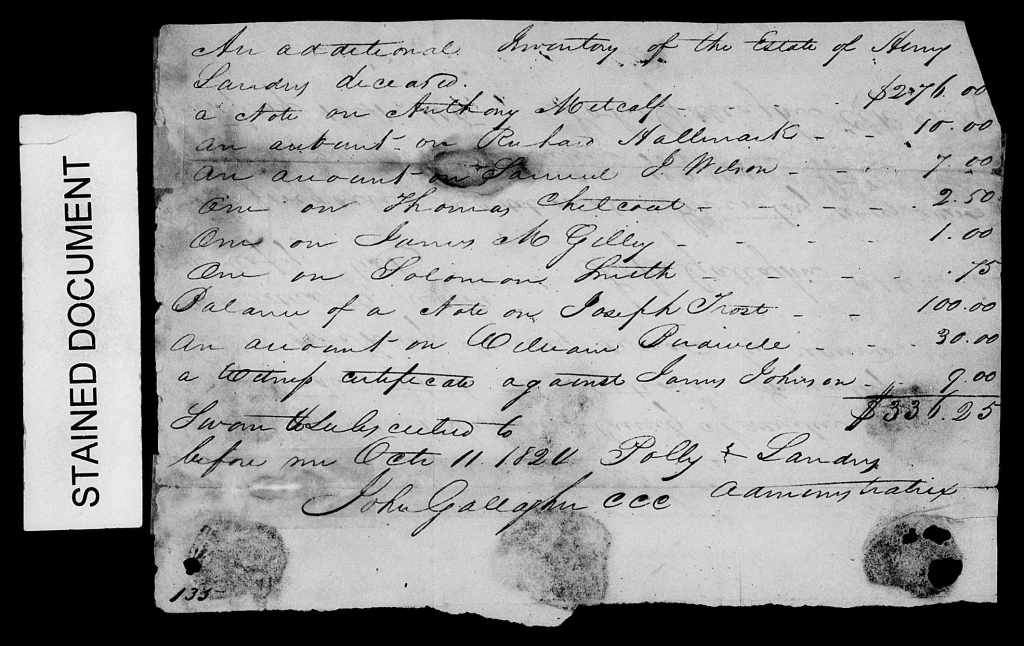 STAINED DOCUMENT
An additional Inventory of the Estate of Henry
Landry deceased.
a Note on Anthony Metcalf - - $276.00
an account on Richard Hallmark - - 10.00
an account on Samuel J. Wilson - - - 7.00
One on Thomas Chilcoat - - - - 2.50
One on James M Gilly - - - - 1.00
One on Solomon Smith - - - - .75
Balance of a Note on Joseph Trost - - 100.00
an account on William Birdwell - - - 30.00
a Witness certificate against James Johnson - - 9.00
$336.25
Sworn & Subscribed to
before me Octr 11. Polly + Landry
John Gallagher CCC Administratrix
135